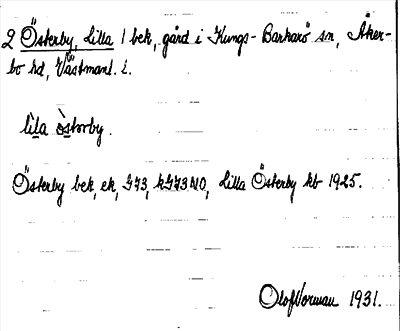 2 Österby, Lilla 1 bek, gård i Kungs-Barkarö sn, Åker-
bo hd, Västmanl. l.
lìla ò̤storby.
Österby bek, ek, G73, kG73 NO, Lilla Österby kb 1925.
Olof Norman 1931.